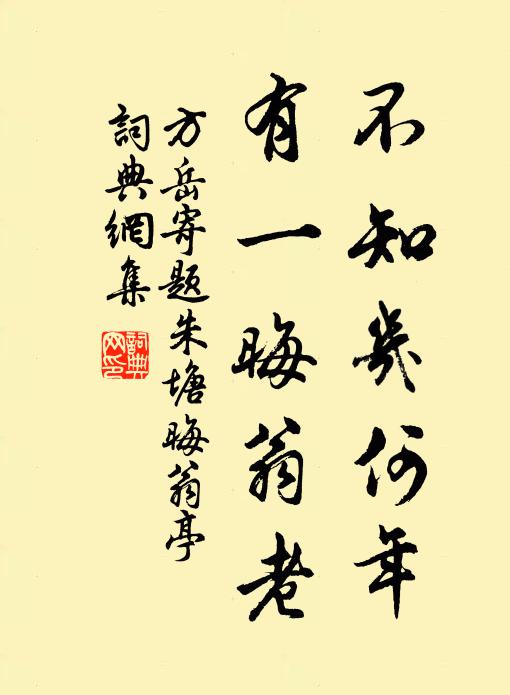 不知幾何年
有一晦翁老
方岳寄題朱塘晦翁亭
詞典網集
詞典網印